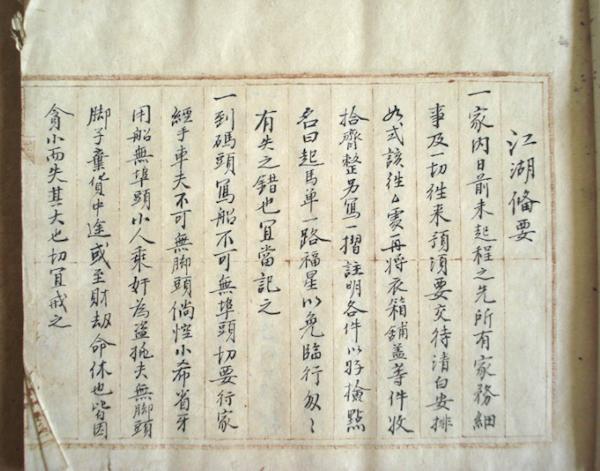 江湖俻要
一家内日前未起程之先所有家務細
事及一切徃来預須要交待清白安排
如式該徃厶處再將衣箱舖盖等件收
拾齊整另寫一摺註明各件以好撿點
名曰起馬单一路福星以免臨行匆〻
有失之錯也宜當記之
一到碼頭寫船不可無埠頭切要行家
經手車夫不可無脚頭倘怪小希省牙
用船無埠頭小人乗奸為盗拠夫無脚頭
脚子棄貨中途或至財刼命休也皆因
貪小而失其大也切宜戒之